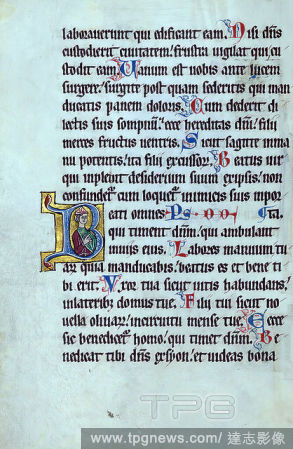 laborauerunt qui edificant eam. Nisi dns
custodierit ciuitatem: frustra uigilat qui cu
stodit eam. Uanum est uobis ante lucem
surgere: surgite post quam sederitis qui man
ducatis panem doloris. Cum dederit di
lectis suis sompnum: ecce hereditas dni: filii
merces fructus uentris. Sicut sagitte in ma
nu potentis: ita filii excussor. Beatus uir
qui impleuit desiderium suum ex ipsis: non
confundetr cum loquetr inimicis suis in por
Beati omnes
qui timent dnm: qui ambulant
in uiis eius. Labores manuum tu
arum quia manducabis: beatus es et bene ti
bi erit. Uxor tua sicut uitis habundans:
in lateribus domus tue. Filii tui sicut no
uella oliuar: in circuitu mense tue. Ecce
sic benedicetr homo: qui timet dnm. Be
nedicat tibi dns ex syon: et uideas bona
TPG
www.tpgnews.com / 達志影像